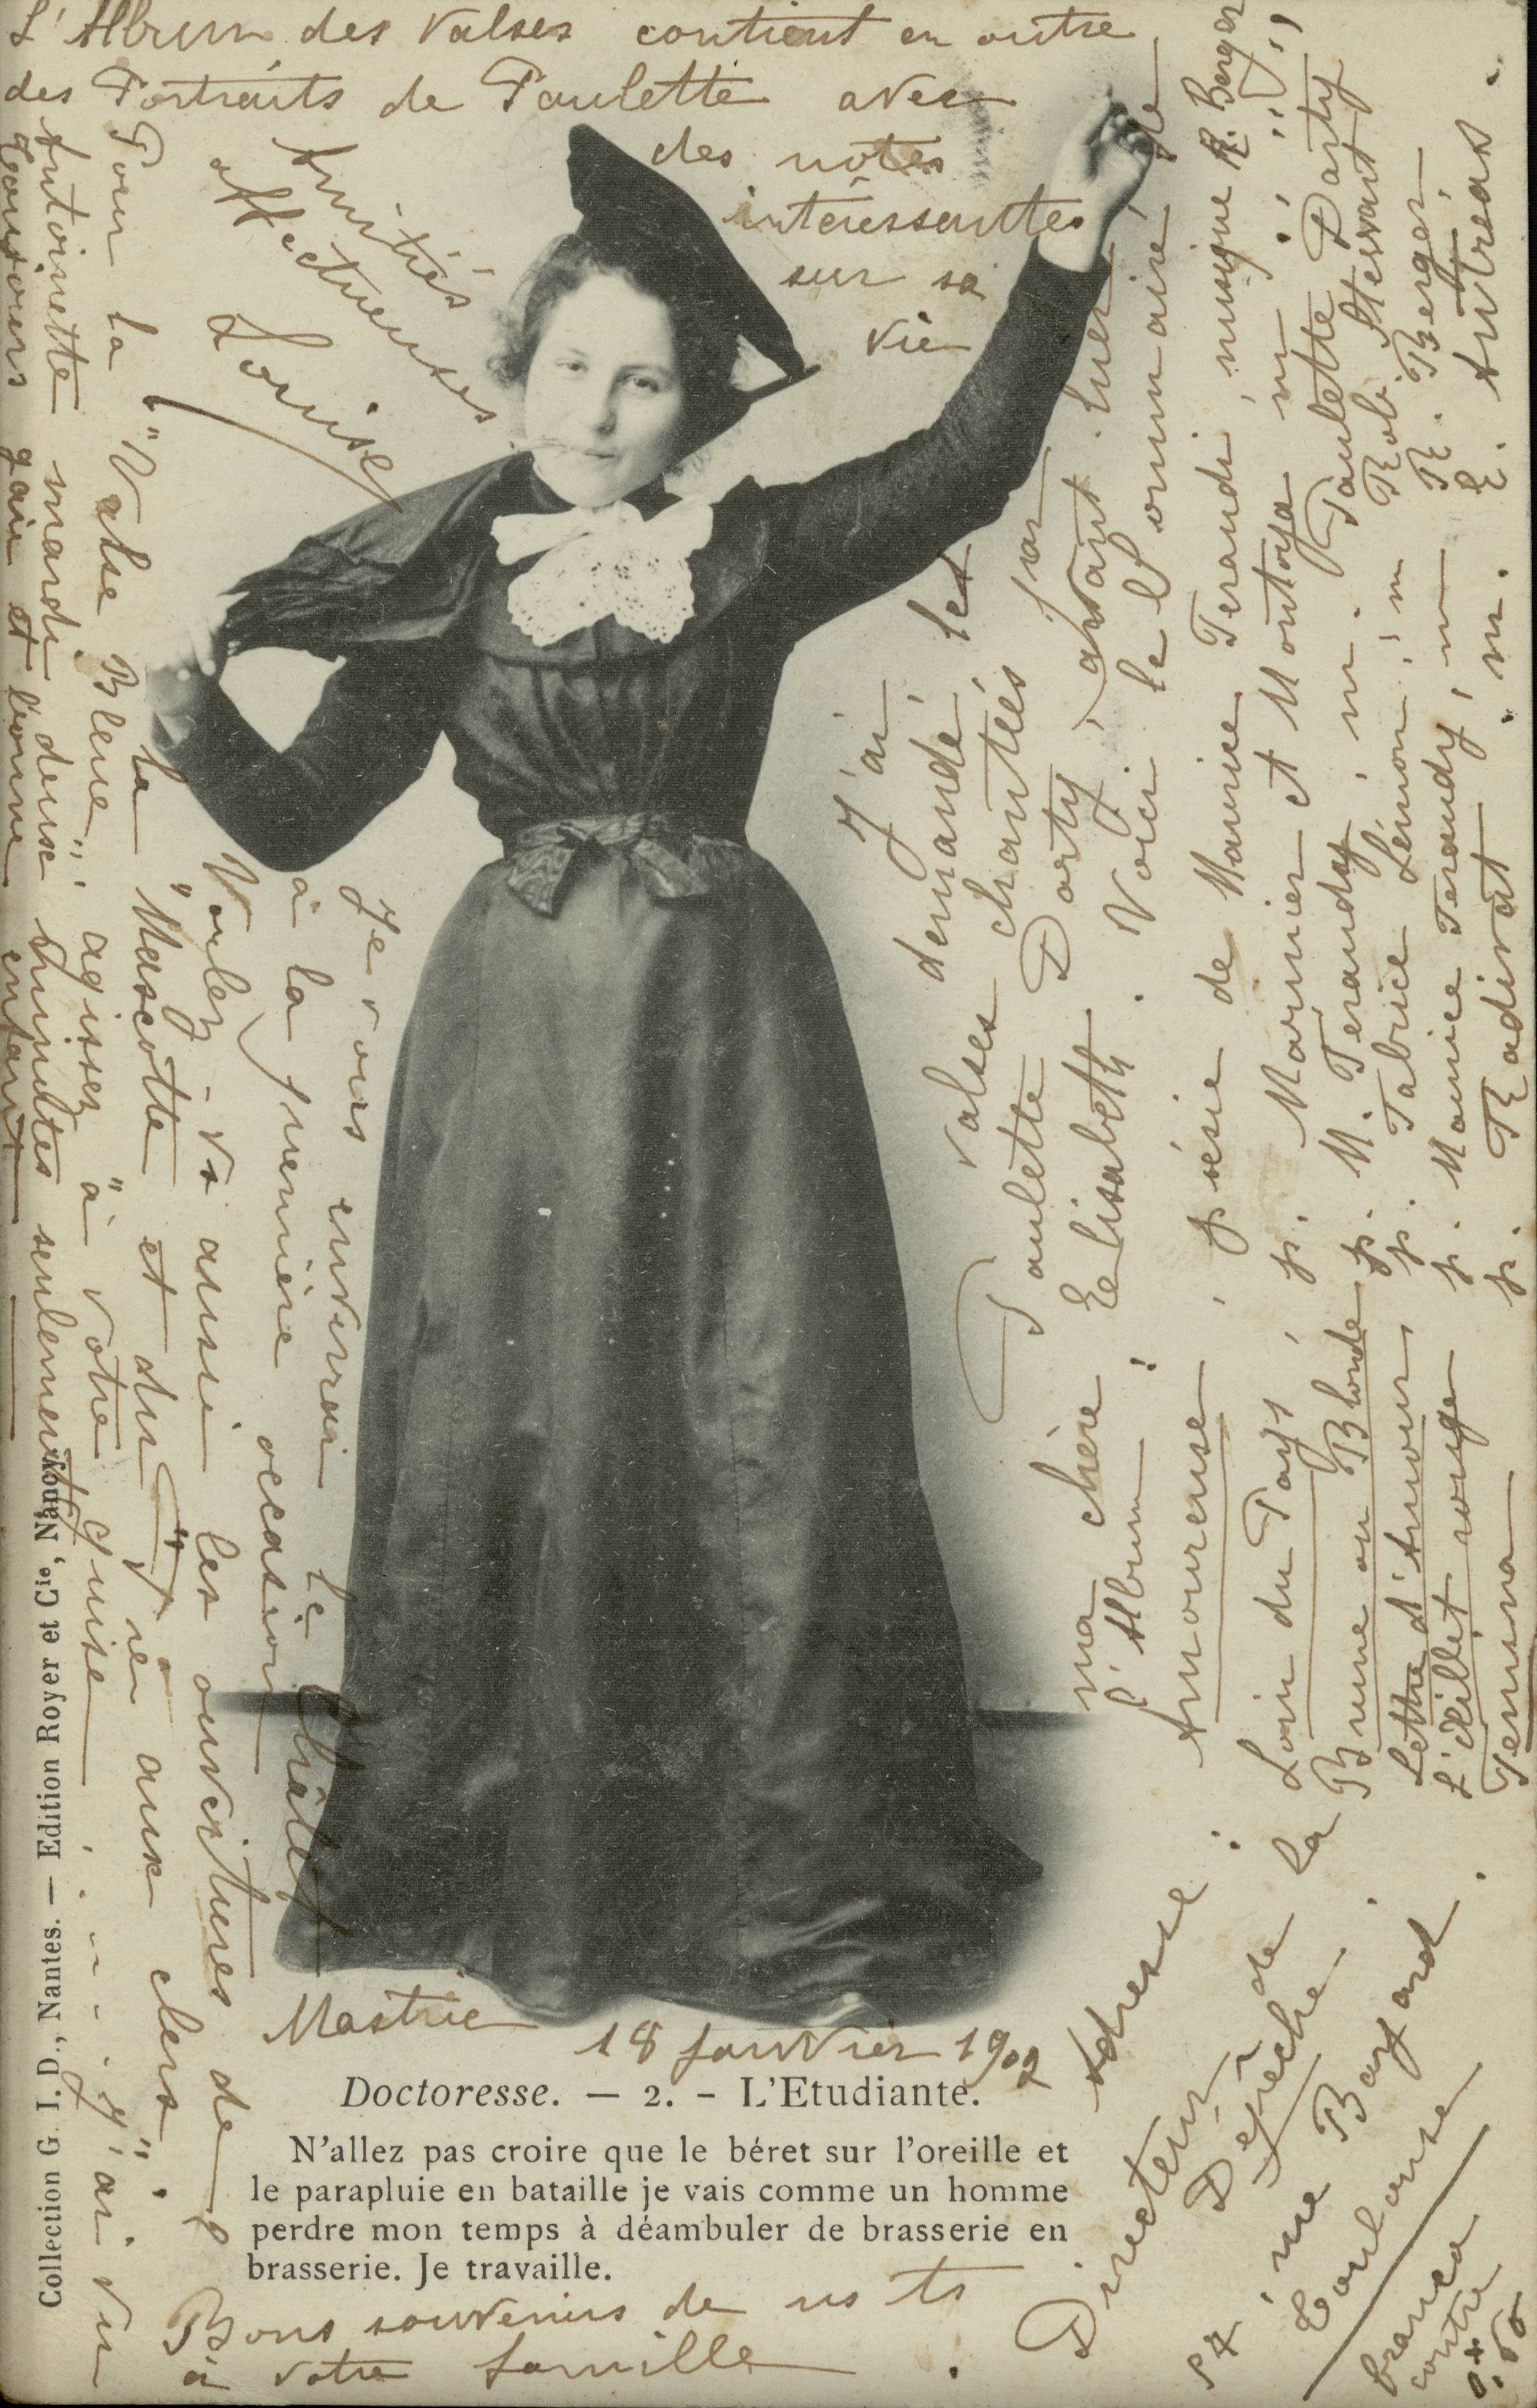 L'Album des Valses contient en outre
des Portraits de Paulette avec
des notes
intéressantes
sur sa
vie
J'ai
demandé les
valses chantées par
Paulette Darty, avant hier
ma chère Elisabeth. Voici le sommaire de
l'Album :
Amoureuse, poésie de Maurice Ferandi, musique R. Berger
Loin du Pays, p. Marinier et Montoya m.
Brune ou Blonde p. M. Ferandy, m. Paulette Darty
Lettre d'Amour p. Fabrice Lémon, m Robi Stewart
L'œillet rouge p. Maurice Ferandy, m R. Berger
Femina p. Radivat, m. E. Autreas.
Adresse :
Directeur de la
Dépêche.
57 rue Bayard.
Toulouse
franco
contre
Je vous enverrai le Châlet
à la première occasion
Voulez-vs aussi les ouvertures de
la "Mascotte et du "
" né aux clers".
Pour la "Valse Bleue", agissez à votre guise
j'ai vu
Antoinette mardi deux minutes seulement
toujours gaie et bonne enfant
Amitiés
affectueuses
Louise
Mastrie 18 janvier 1902
Doctoresse. — 2. - L'Etudiante.
N'allez pas croire que le béret sur l'oreille et
le parapluie en bataille je vais comme un homme
perdre mon temps à déambuler de brasserie en
brasserie. Je travaille.
Bons souvenirs de ns ts
à votre famille.
Collection G. I. D., Nantes. — Edition Royer et Cie, Nancy.